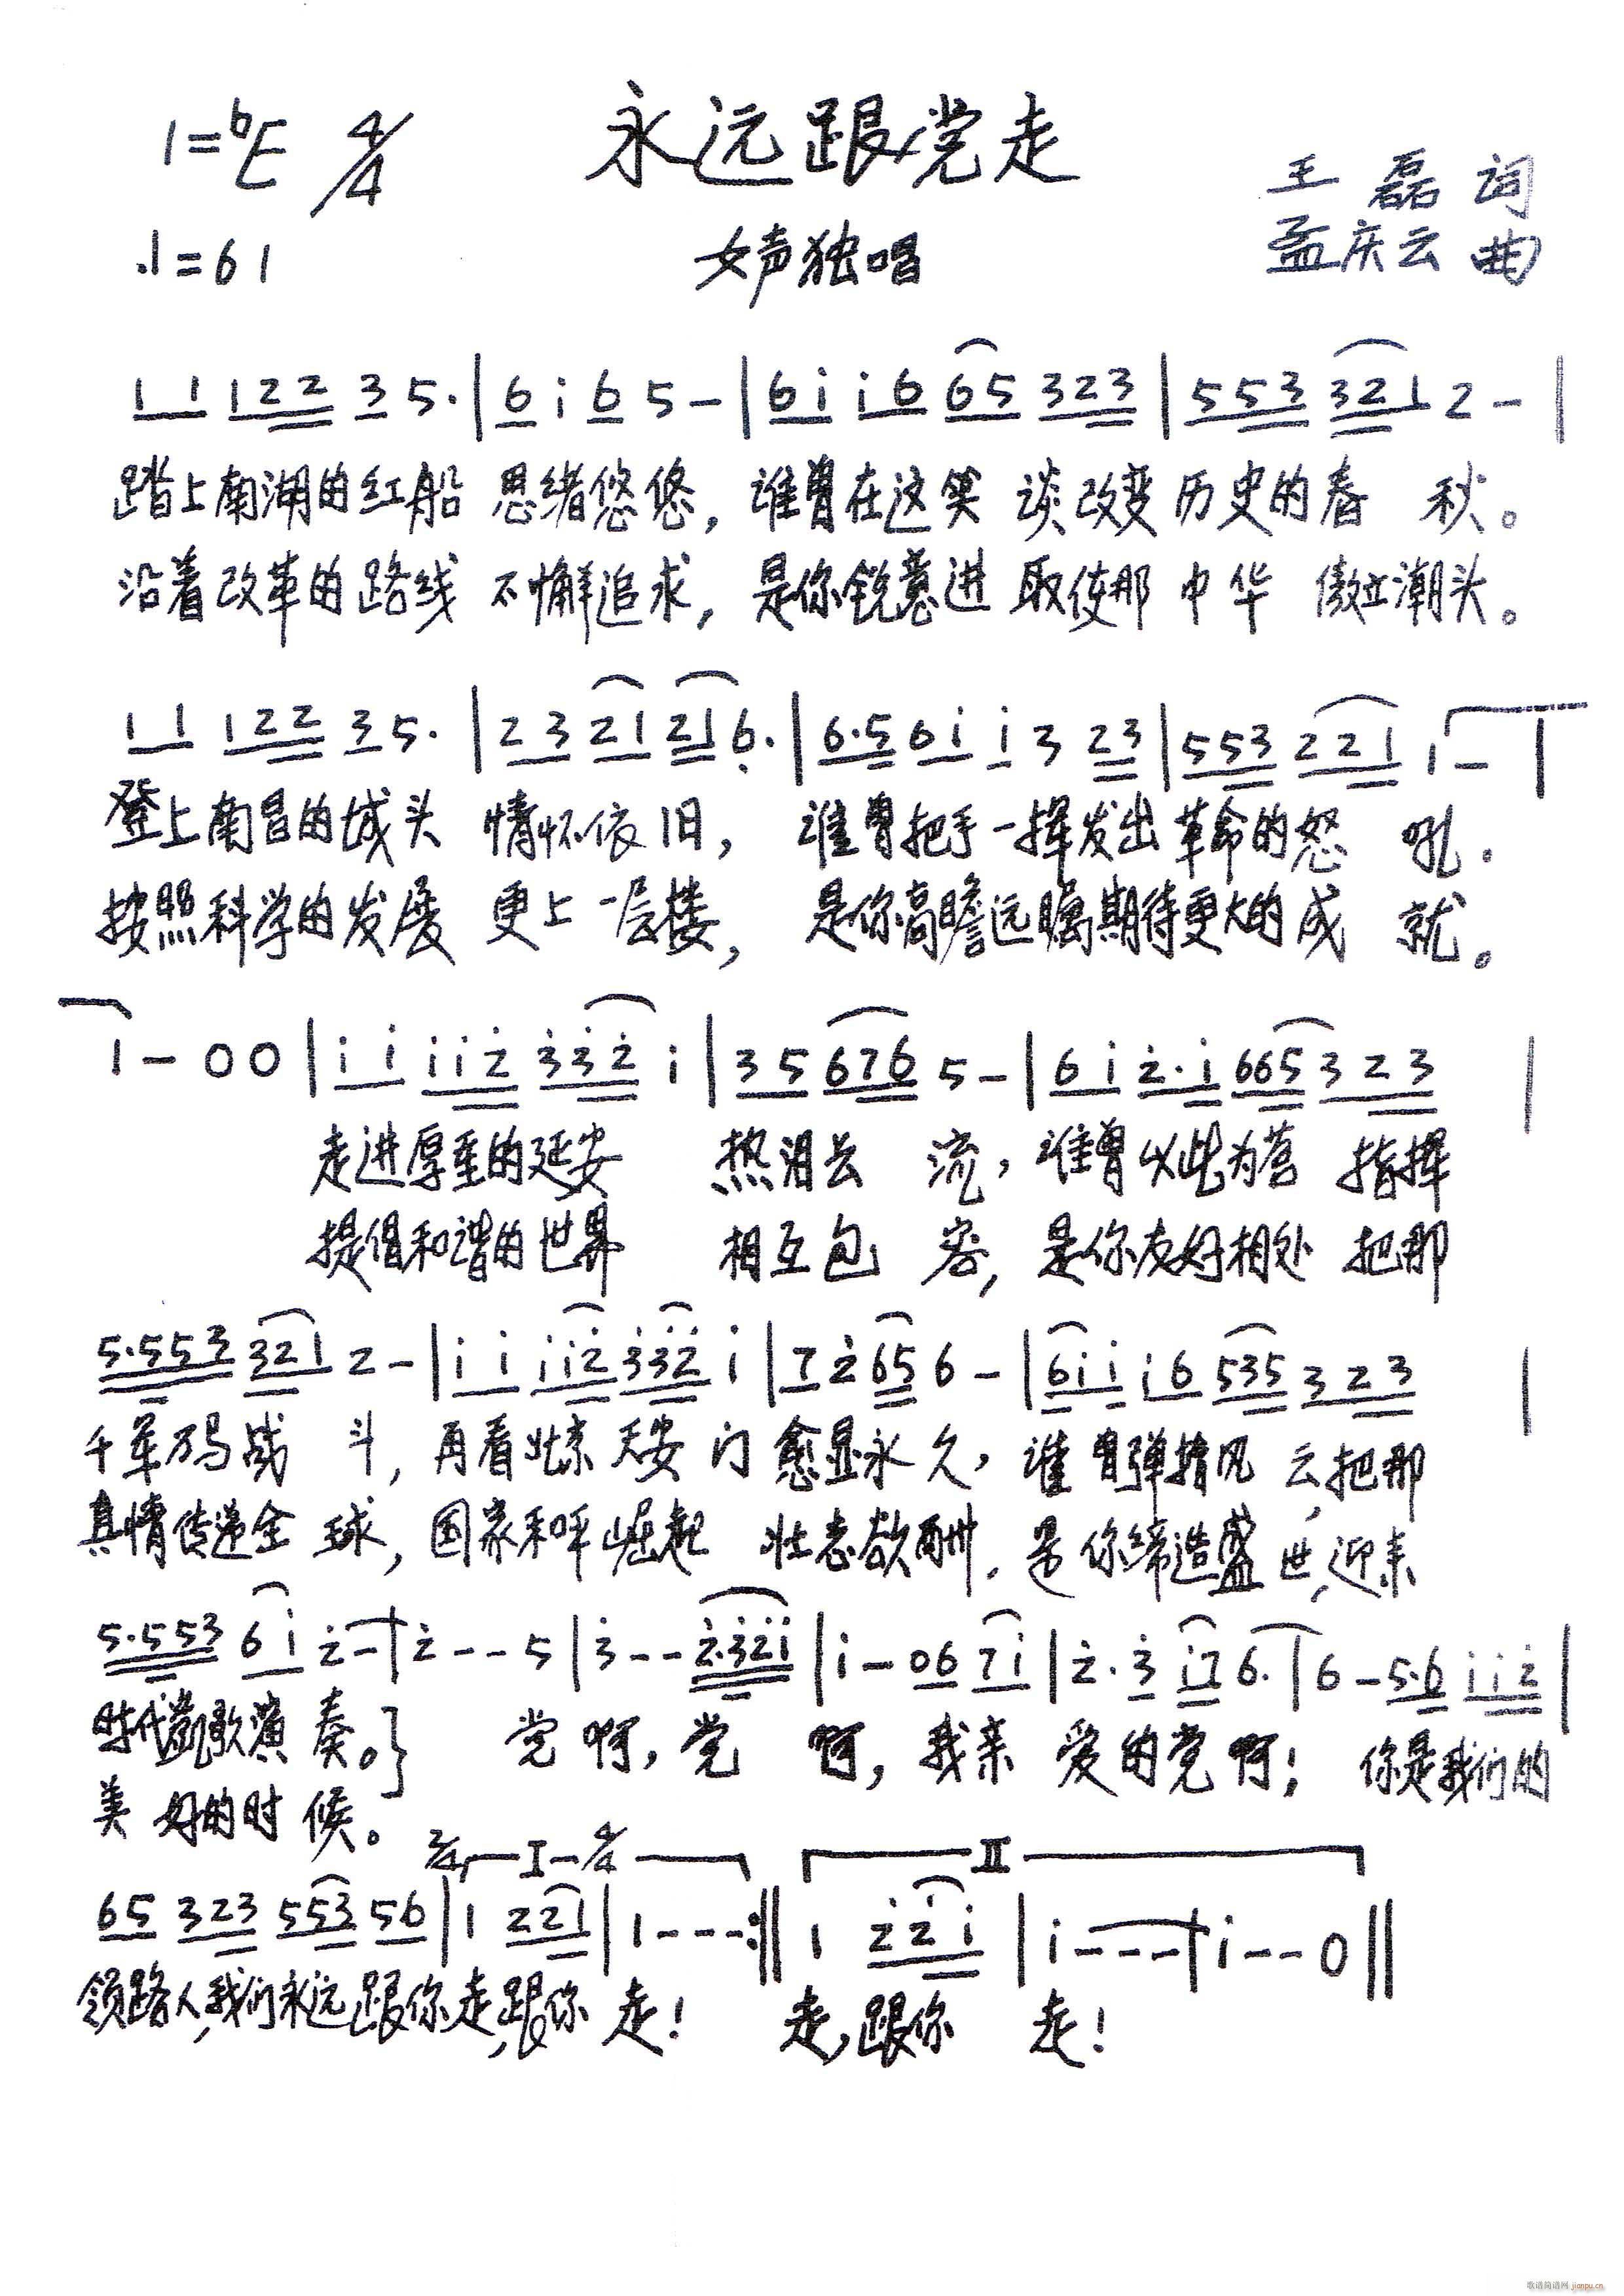 1=♭E 4/4 永远跟党走
王磊 词
♩=61 女声独唱 孟庆云 曲
1 1 1 2 2 3 5· | 6 i 6 5 – | 6 i i 6 6 5 3 2 3 | 5 5 3 3 2 1 2 – |
踏上南湖的红船 思绪悠悠，谁曾在这笑 谈改变历史的春 秋。
沿着改革的路线 不懈追求，是你锐意进 取使那 中华 傲立潮头。
1 1 1 2 2 3 5· | 2 3 2 1 2 1 6· | 6·5 6 i i 3 2 3 | 5 5 3 2 2 1 1 – |
登上南昌的城头 情怀依旧，谁曾把手一挥发出革命的怒 吼．
按照科学的发展 更上一层楼，是你高瞻远瞩期待更大的成 就。
1 – 0 0 | i i i i 2 3 3 2 i | 3 5 6 7 6 5 – | 6 i 2·i 6 6 5 3 2 3 |
走进厚重的延安 热泪长 流，谁曾以此为营 指挥
提倡和谐的世界 相互包 容，是你友好相处 把那
5·5 5 3 3 2 1 2 – | i i i i 2 3 3 2 i | 7 2 6 5 6 – | 6 i i i 6 5 3 5 3 2 3 |
千军万马战 斗，再看北京天安门愈显永久，谁曾弹指风 云，把那
真情传递全 球，国家和平崛起 壮志欲酬．是你缔造盛世，迎来
5·5 5 3 6 i 2 – | 2 – – 5 | 3 – – 2·3 2 i | i – 0 6 7 i | 2·3 i 7 6· | 6 – 5·6 i i 2 |
时代凯歌演 奏。} 党啊，党 啊，我亲 爱的党啊！ 你是我们的
美好的时 候。
2/4 I 4/4 II
6 5 3 2 3 5 5 3 5 6 | 1 2 2 1 | 1 – – – :‖ 1 2 2 i | i – – – | i – – 0 ‖
领路人，我们永远跟你走，跟你 走！ 走，跟你 走！
歌谱简谱网 jianpu.cn